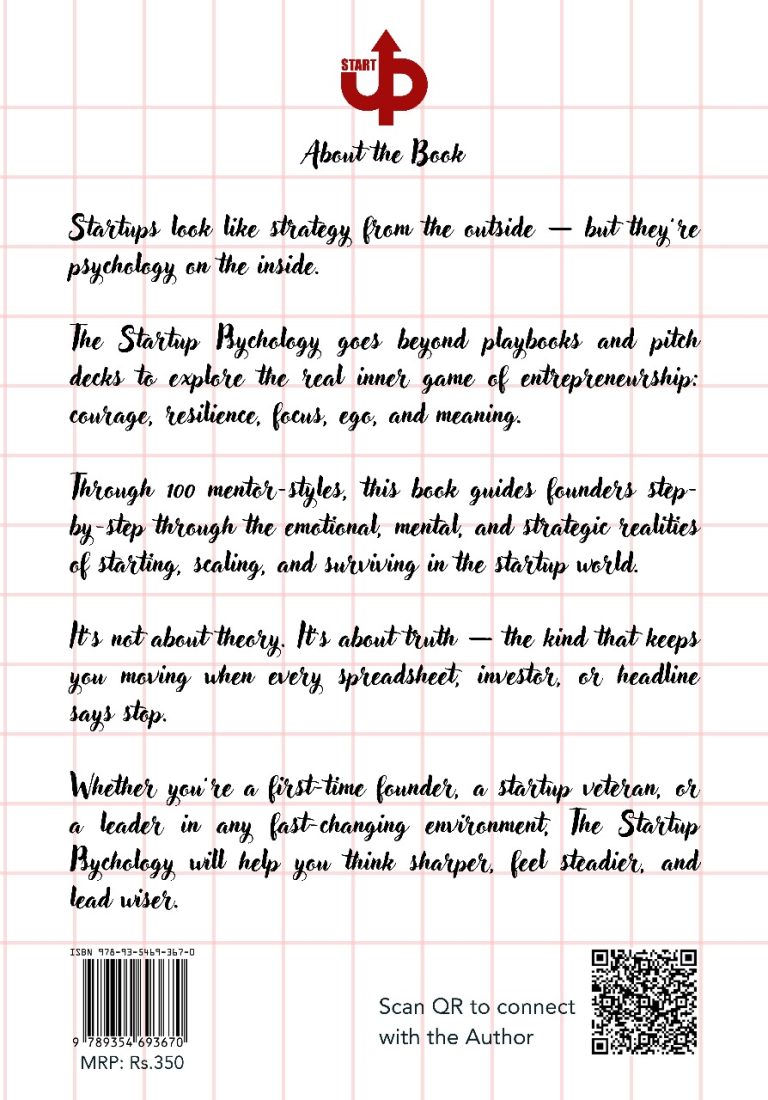 START
UP
About the Book
Startups look like strategy from the outside — but they're
psychology on the inside.
The Startup Psychology goes beyond playbooks and pitch
decks to explore the real inner game of entrepreneurship:
courage, resilience, focus, ego, and meaning.
Through 100 mentor-styles, this book guides founders step-
by-step through the emotional, mental, and strategic realities
of starting, scaling, and surviving in the startup world.
It's not about theory. It's about truth — the kind that keeps
you moving when every spreadsheet, investor, or headline
says stop.
Whether you're a first-time founder, a startup veteran, or
a leader in any fast-changing environment, The Startup
Psychology will help you think sharper, feel steadier, and
lead wiser.
ISBN 978-93-5469-367-0
9 789354 693670
MRP: Rs.350
Scan QR to connect
with the Author